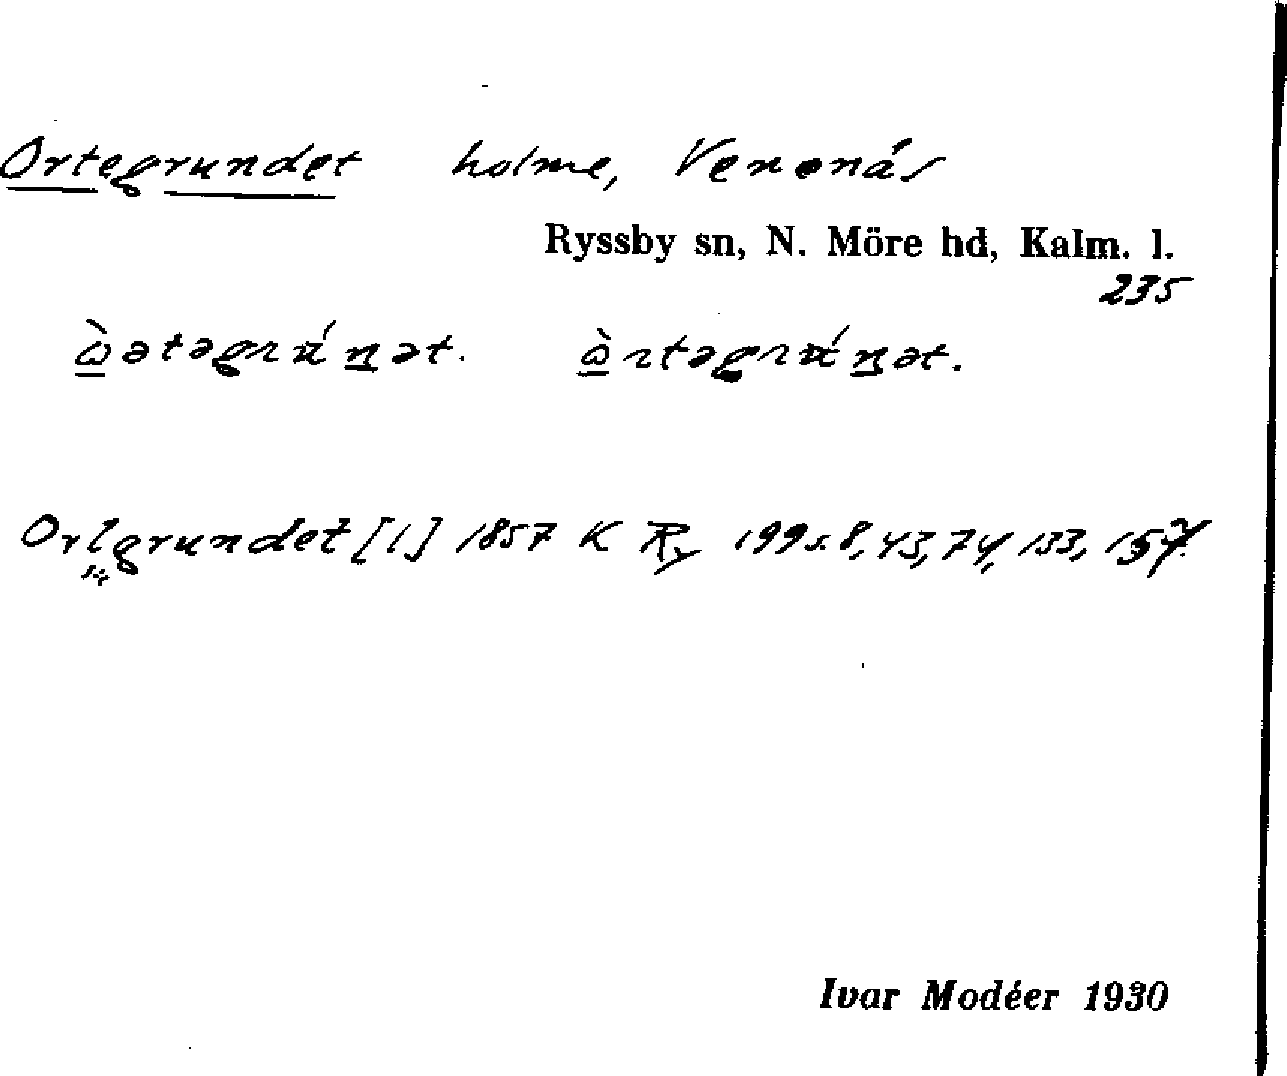 Ortegrundet holme, Venenäs
Ryssby sn, N. Möre hd, Kalm. l.
235
ὼətəgrʉ́n̲ət. ò̲rtəgrʉ́n̲ət.
Orlgrundet [1] 1857 K Ry 199 s. 8, 43, 74, 133, 157.
sic
Ivar Modéer 1930